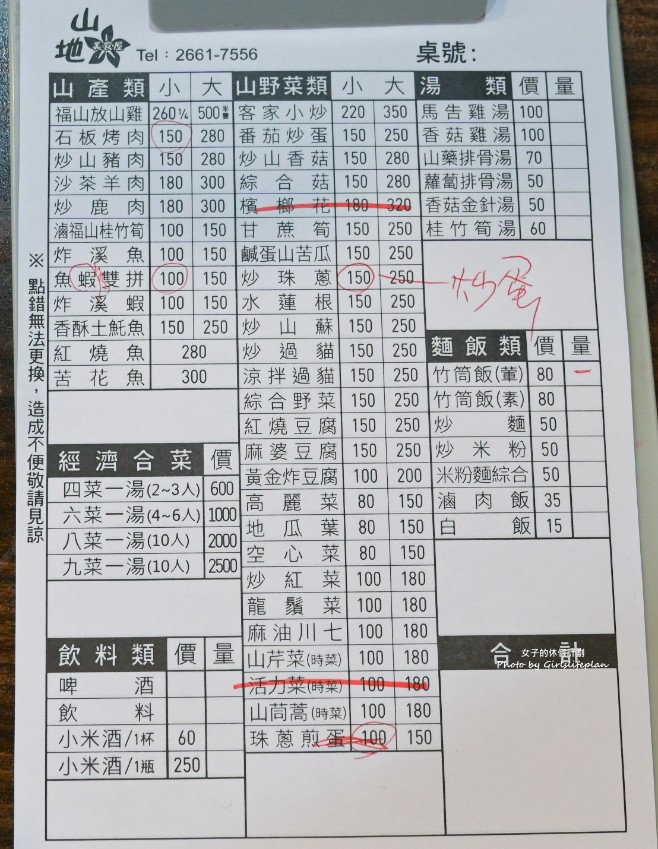 山地
美食屋
Tel：2661-7556
桌號：
山產類 小 大
福山放山雞 260 1/4 500 半隻
石板烤肉 150 280
炒山豬肉 150 280
沙茶羊肉 180 300
炒鹿肉 180 300
滷福山桂竹筍 100 150
炸溪魚 100 150
魚蝦雙拼 100 150
炸溪蝦 100 150
香酥土魠魚 150 250
紅燒魚 280
苦花魚 300
經濟合菜 價
四菜一湯(2~3人) 600
六菜一湯(4~6人) 1000
八菜一湯(10人) 2000
九菜一湯(10人) 2500
飲料類 價 量
啤酒
飲料
小米酒/1杯 60
小米酒/1瓶 250
山野菜類 小 大
客家小炒 220 350
番茄炒蛋 150 250
炒山香菇 150 280
綜合菇 150 280
檳榔花 180 320
甘蔗筍 150 250
鹹蛋山苦瓜 150 250
炒珠蔥 150 250
水蓮根 150 250
炒山蘇 150 250
炒過貓 150 250
涼拌過貓 150 250
綜合野菜 150 250
紅燒豆腐 150 250
麻婆豆腐 150 250
黃金炸豆腐 100 200
高麗菜 80 150
地瓜葉 80 150
空心菜 80 150
炒紅菜 100 180
龍鬚菜 100 180
麻油川七 100 180
山芹菜(時菜) 100 180
活力菜(時菜) 100 180
山茼蒿(時菜) 100 180
珠蔥煎蛋 100 150
湯類 價 量
馬告雞湯 100
香菇雞湯 100
山藥排骨湯 70
蘿蔔排骨湯 50
香菇金針湯 50
桂竹筍湯 60
炒蛋
麵飯類 價 量
竹筒飯(葷) 80 一
竹筒飯(素) 80
炒麵 50
炒米粉 50
米粉麵綜合 50
滷肉飯 35
白飯 15
合計
女子的休假計劃
Photo by Girlslifeplan
※ 點錯無法更換，造成不便敬請見諒